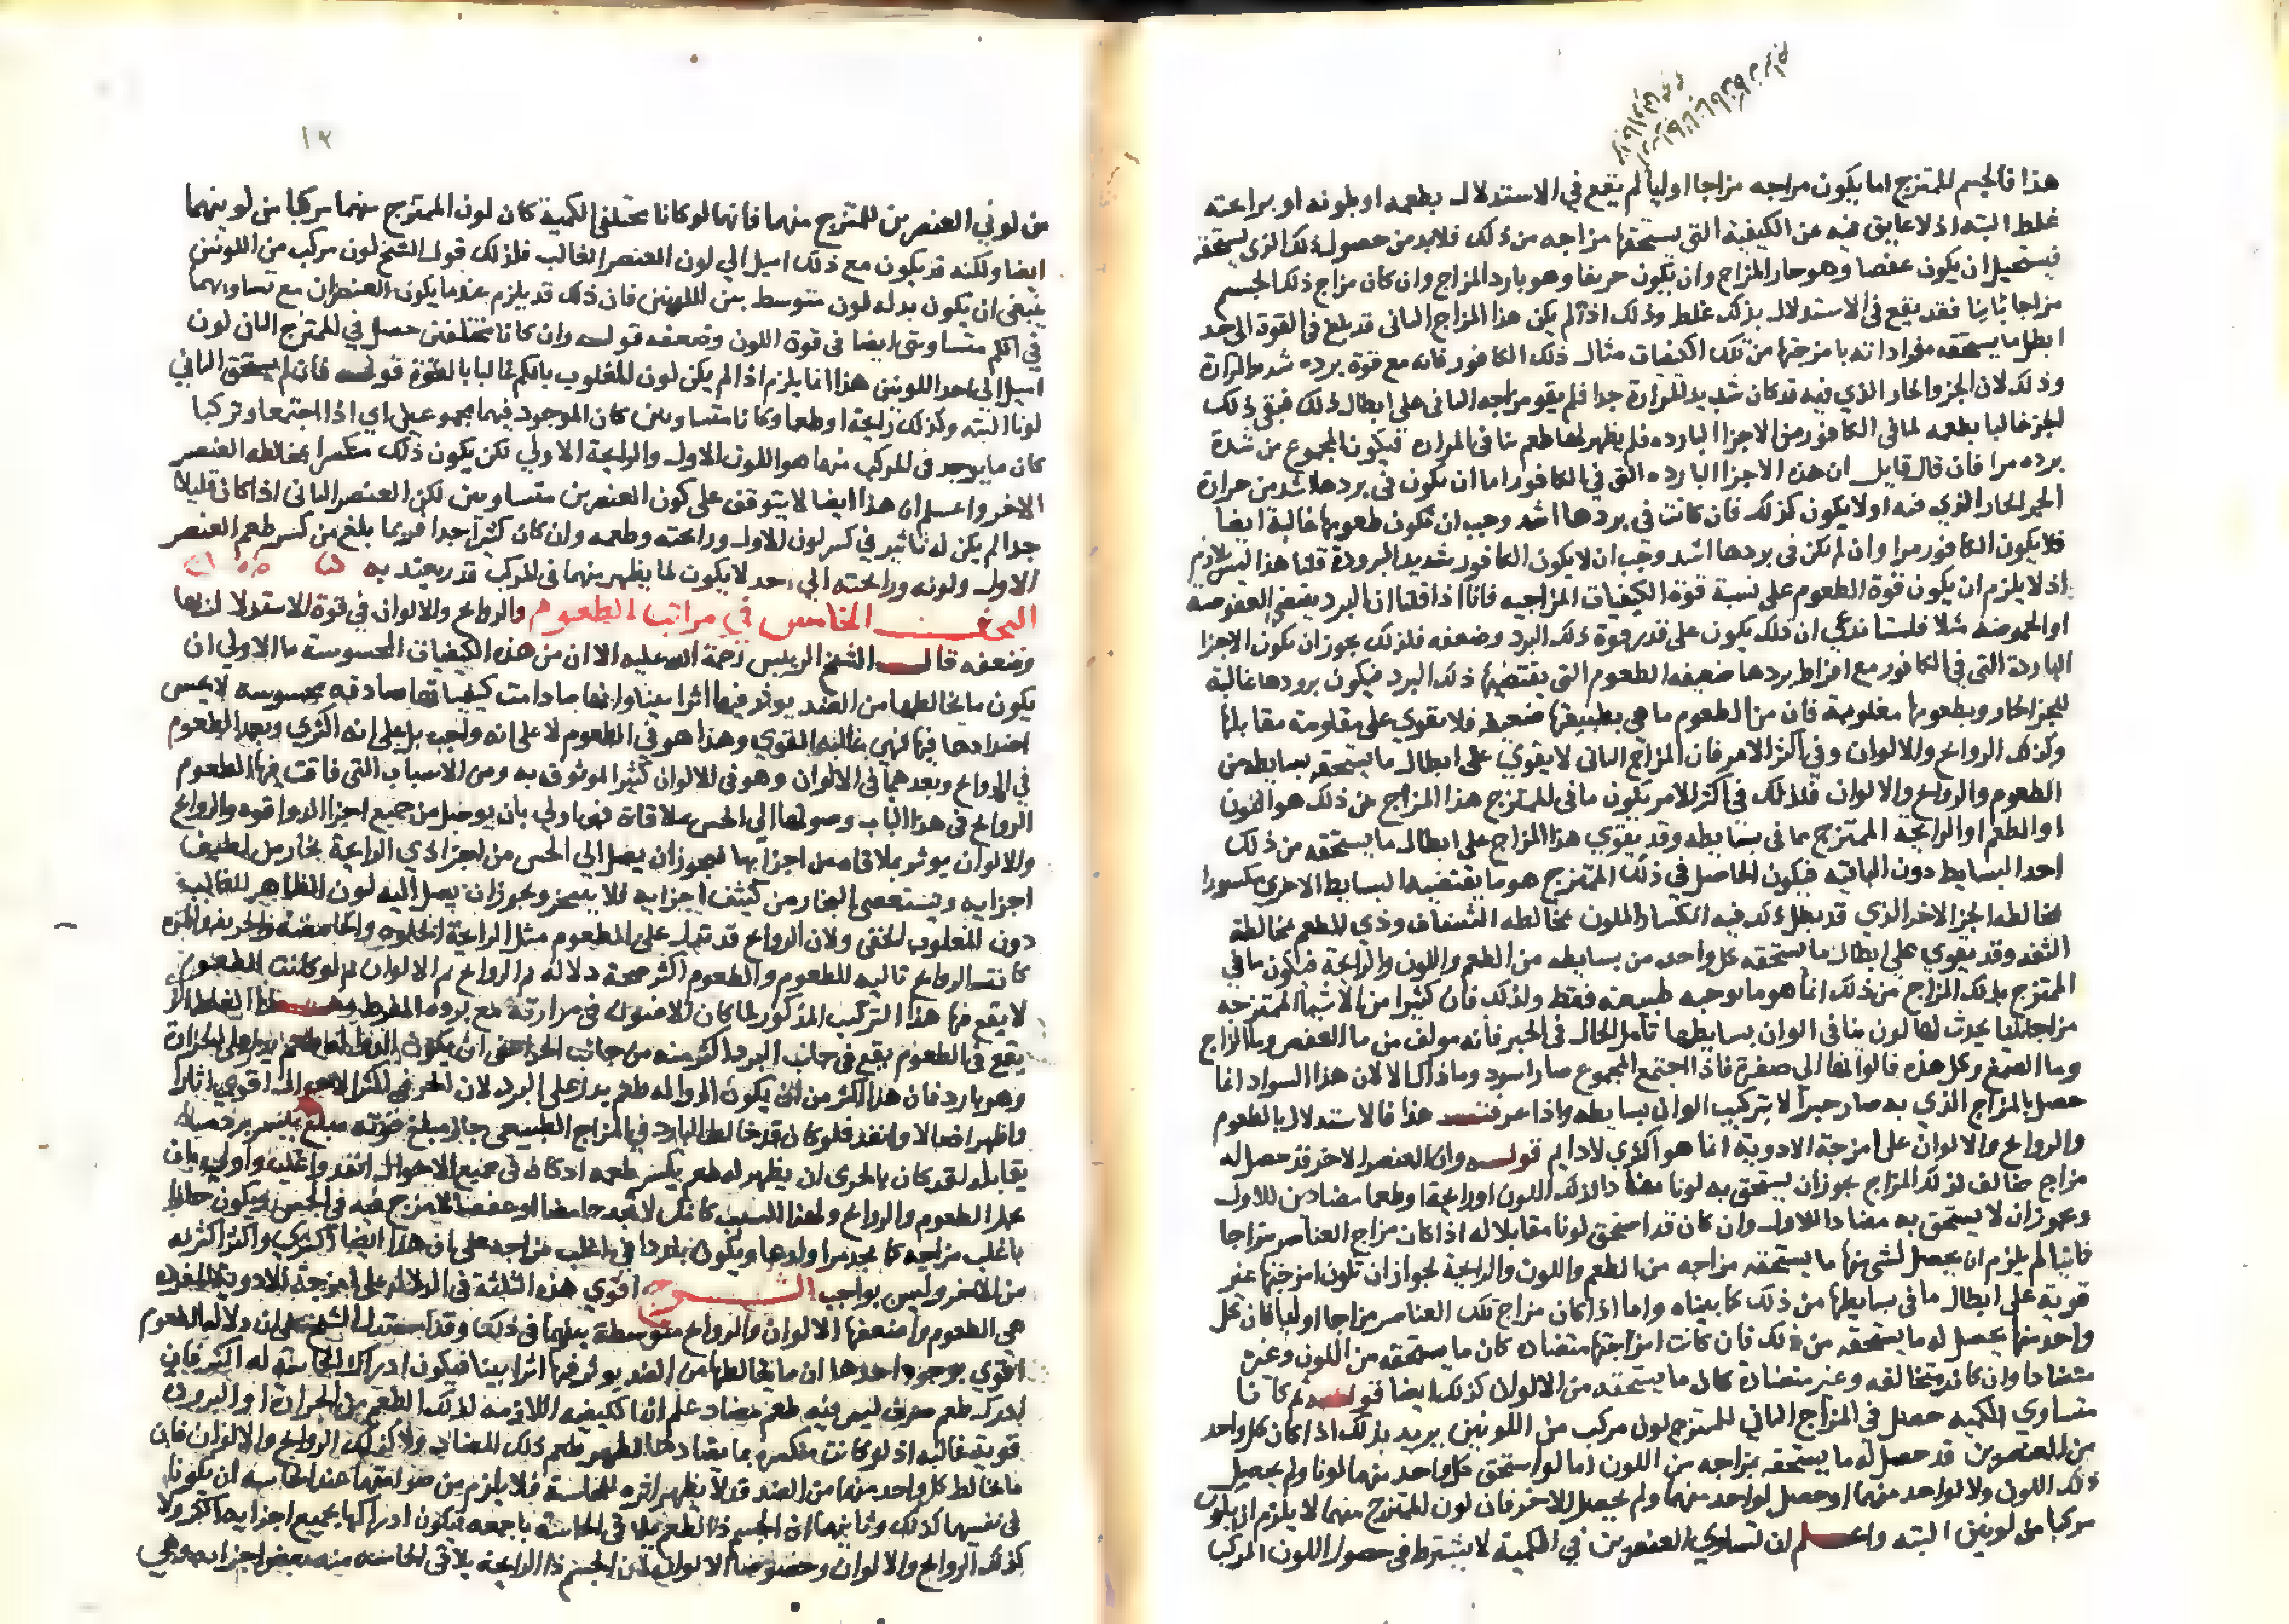 هذا فالجسم الممتزج اما يكون مزاجه مزاجا اوليا لم يقع في الاستدلال بطعمه او بلونه او برايحته
غلط البته اذ لا عايق فيه عن الكيفية التي يستحقها مزاجه من ذلك فلابد من حصول ذلك الذي يستحقه
فيستحيل ان يكون عفصا وهو حار المزاج وان يكون حريفا وهو بارد المزاج وان كان مزاج ذلك الجسم
مزاجا ثانيا فقد يقع في الاستدلال بذلك غلط وذلك اذا لم يكن هذا المزاج الثاني قد بلغ في القوة الى حد
ابطل ما يستحقه مفرداته بامزجتها من تلك الكيفيات مثال ذلك الكافور فانه مع قوة برده شديد المرارة
وذلك لان الجزو الحار الذي فيه قد كان شديد المرارة جدا فلم يقو مزاجه الثاني على ابطال ذلك فبقي ذلك
الجز غالبا بطعمه لما في الكافور من الاجزا البارده فلم يظهر لها طعم ينافي المراره فيكون المجموع من شدة
برده مرا فان قال قايل ان هذه الاجزا البارده التي في الكافور اما ان يكون في بردها اشد من حرارة
الجز الحار الذي فيه اولا يكون كذلك فان كانت في بردها اشد وجب ان تكون طعومها غالبة ايضا
فلا يكون الكافور مرا وان لم يكن في بردها اشد وجب ان لا يكون الكافور شديد البرودة قلنا هذا ليس بلازم
اذ لا يلزم ان يكون قوة الطعوم على نسبة قوة الكيفيات المزاجيه فانا اذا قلنا ان البرد يقتضي العفوصه
او الحموضه مثلا فلسنا ندعي ان ذلك يكون على قدر قوة ذلك البرد وضعفه فلذلك يجوز ان يكون الاجزا
الباردة التي في الكافور مع افراط بردها ضعيفه الطعوم التي يقتضيها ذلك البرد فيكون برودها غالبة
للجز الحار وبطعومها مغلوبة فان من الطعوم ما هي بطبيعتها ضعيفه فلا يقوي على مقاومة مقابلها
وكذلك الروايح والالوان وفي اكثر الامر فان المزاج الثاني لا يقوي على ابطال ما يستحقه بسايطه من
الطعوم والروايح والالوان فلذلك في اكثر الامر يكون ما في الممتزج هذا المزاج من ذلك هو اللون
او الطعم او الرايحة الممتزج مما في بسايطه وقد يقوي هذا المزاج على ابطال ما يستحقه من ذلك
احد البسايط دون الباقيه فيكون الحاصل في ذلك الممتزج هو ما يقتضيه البسايط الاخري مكسورا
بمخالطه الجز الاخر الذي قد بطل ذلك فيه انكسار الملون بمخالطه الشفاف وذي الطعم بمخالطة
التفه وقد يقوي على ابطال ما يستحقه كل واحد من بسايطه من الطعم واللون والرايحة فيكون ما في
الممتزج بذلك المزاج من ذلك انما هو ما يوجبه طبيعته فقط ولذلك فان كثيرا من الاشيا الممتزجه
مزاجا ثانيا يحدث لها لون ينافي الوان بسايطها تامل الحال في الحبر فانه مولف من ما العفص وما الزاج
وما الصمغ وكل هذه فالوانها الى صفرة فاذا اجتمع المجموع صار اسود وما ذاك الا لان هذا السواد انما
حصل بالمزاج الذي به صار حبرا لا بتركيب الوان بسايطه واذا عرفت هذا فالاستدلال بالطعوم
والروايح والالوان على امزجة الادوية انما هو اكثري لا دايم قوله وان كان العنصر الاخر قد حصل له
مزاج مخالف لذلك المزاج يجوز ان يستحق به لونا مضادا لذلك اللون او رايحة او طعما مضادين للاول
ويجوز ان لا يستحق به مضادا للاول وان كان قد استحق لونا مقابلا له اذا كان مزاج العناصر مزاجا
ثانيا لم يلزم ان يحصل لشي منها ما يستحقه مزاجه من الطعم واللون والرايحة لجواز ان تكون امزجتها غير
قوية على ابطال ما في بسايطها من ذلك كما بيناه واما اذا كان مزاج تلك العناصر مزاجا اوليا فان كل
واحد منها يحصل له ما يستحقه من ذلك فان كانت امزجتها متضاده كان ما يستحقه من اللون وغيره
متضادا وان كانت متخالفه وغير متضادة كان ما يستحقه من الالوان كذلك ايضا قوله كانا
متساوي الكميه حصل في المزاج الثاني للممتزج لون مركب من اللونين يريد بذلك اذا كان كل واحد
من العنصرين قد حصل له ما يستحقه بمزاجه من اللون اما لو استحق كل واحد منهما لونا ولم يحصل
ذلك اللون ولا لواحد منهما او حصل لواحد منهما ولم يحصل للاخر فان لون الممتزج منهما لا يلزم ان يكون
مركبا من لونين البته واعلم ان تساوي العنصرين في الكمية لا يشترط في حصول اللون المركب
١٢
من لوني العنصرين للممتزج منهما فانهما لو كانا مختلفي الكمية كان لون الممتزج منهما مركبا من لونيهما
ايضا ولكنه قد يكون مع ذلك اميل الي لون العنصر الغالب فلذلك قول الشيخ لون مركب من اللونين
ينبغي ان يكون بدله لون متوسط بين اللونين فان ذلك قد يلزم عندما يكون العنصران مع تساويهما
في الكم متساويتي ايضا في قوة اللون وضعفه قوله وان كانا مختلفين حصل في الممتزج الثاني لون
اميل الى احد اللونين هذا انما يلزم اذا لم يكن لون المغلوب بالكم غالبا بالقوة قوله فان لم يستحق الثاني
لونا البته وكذلك رايحة او طعما وكانا متساويين كان الموجود فيهما مجموعين اي اذا اجتمعا وتركبا
كان ما يوجد في المركب منهما هو اللون الاول والرايحة الاولي لكن يكون ذلك منكسرا بمخالطه العنصر
الاخر واعلم ان هذا ايضا لا يتوقف على كون العنصرين متساويين لكن العنصر الثاني اذا كان قليلا
جدا لم يكن له تاثير في كسر لون الاول ورايحته وطعمه وان كان كثيرا جدا فربما بلغ من كسر طعم العنصر
الاول ولونه ورايحته الي حد لا يكون لما يظهر منهما في المركب قدر يعتد به
البحث الخامس في مراتب الطعوم والروايح والالوان في قوة الاستدلال بها
وضعفه قال الشيخ الرييس رحمة الله عليه الا ان من هذه الكيفيات المحسوسة ما الاولي ان
يكون ما يخالطها من الضد يوثر فيها اثرا بينا وانها ما دامت كيفياتها صادقه محسوسه لا يحس
اضدادها فيها فهي غالبه القوي وهذا هو في الطعوم لا على انه واجب بل على انه اكثري وبعد الطعوم
في الروايح وبعدهما في الالوان وهو في الالوان كثير الوثوق به ومن الاسباب التي فاقت فيها الطعوم
الروايح في هذا الباب وصولها الي الحس بملاقاة فهي اولي بان يوصل من جميع اجزا الدوا قوه والروايح
والالوان يوثر بملاقاه من اجزايها فيجوز ان يصل الي الحس من اجزا ذي الرايحة بخار من لطيف
اجزايه ويستعصى البخار من كثيف اجزايه فلا يتبخر ويجوز ان يصل اليه لون الظاهر الغالب
دون المغلوب الخفي ولان الروايح قد تدل على الطعوم مثل الرايحة الحلوه والحامضة والحريفه والمره
كانت الروايح تاليه للطعوم والطعوم اكثر صحة دلاله ثم الروايح ثم الالوان ثم لو كانت الطعوم
لا يقع فيها هذا التركيب المذكور لما كان الافيون في مرارته مع برده المفرط
يقع في الطعوم يقع في جانب البرد اكثر منه من جانب الحر اعني ان يكون الدوا له طعم يدل على الحرارة
وهو بارد فان هذا اكثر من ان يكون الدوا له طعم يدل على البرد لان الحر في اكثر الاحوال اقوي اثارا
واظهر افعالا وانفذ فلو كان قد خالط البارد في المزاج الطبيعي حار مبلغ قوته مبلغ يكسر برد
يقابله لقد كان بالحري ان يظهر له طعم يكسر طعمه اذ كان في جميع الاحوال انفذ واغلب واولي بان
يحمل الطعوم والروايح ولهذا السبب كانك لا تجد حامضا او عفصا لا مزج فيه في الحس يكون حارا
باغلب مزاجه كما تجد مرا ولذعا ويكون باردا في اغلب مزاجه على ان هذا ايضا اكثري واكثر اكثريه
من الاخر وليس بواجب الشرح اقوي هذه الثلاثة في الدلاله على امزجة الادوية المفرده
هي الطعوم واضعفها الالوان والروايح متوسطة بينهما في ذلك وقد استدل الشيخ على ان دلاله الطعوم
اقوي بوجوه احدها ان ما يخالطها من الضد يوثر فيها اثرا بينا فيكون ادراك الحاسة له اكثر فان
ادرك طعم صرف ليس فيه طعم مضاد علم ان الكيفيه اللازمه لذلك الطعم من الحرارة او البرودة
قوية غالبه اذ لو كانت منكسره بما يضادها لظهر طعم ذلك المضاد ولا كذلك الروايح والالوان فان
ما يخالط كل واحد منهما من الضد قد لا يظهر اثره للحاسة فلا يلزم من صرافتهما عند الحاسه ان يكونا
في نفسهما كذلك وثانيهما ان الجسم ذا الطعم يلاقي الحاسة باجمعه فيكون ادراكها بجميع اجزايه اكثر ولا
كذلك الروايح والالوان وخصوصا الالوان لان الجسم ذا الرايحة يلاقي الحاسه منه بعض اجزايه وهي